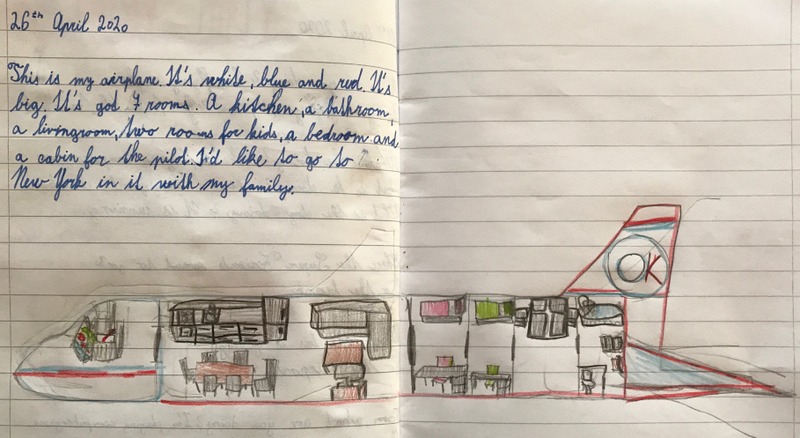 26th April 2020
This is my airplane. It's white, blue and red. It's
big. It's got 7 rooms. A kitchen, a bathroom,
a livingroom, two rooms for kids, a bedroom and
a cabin for the pilot. I'd like to go to
New York in it with my family.
OK